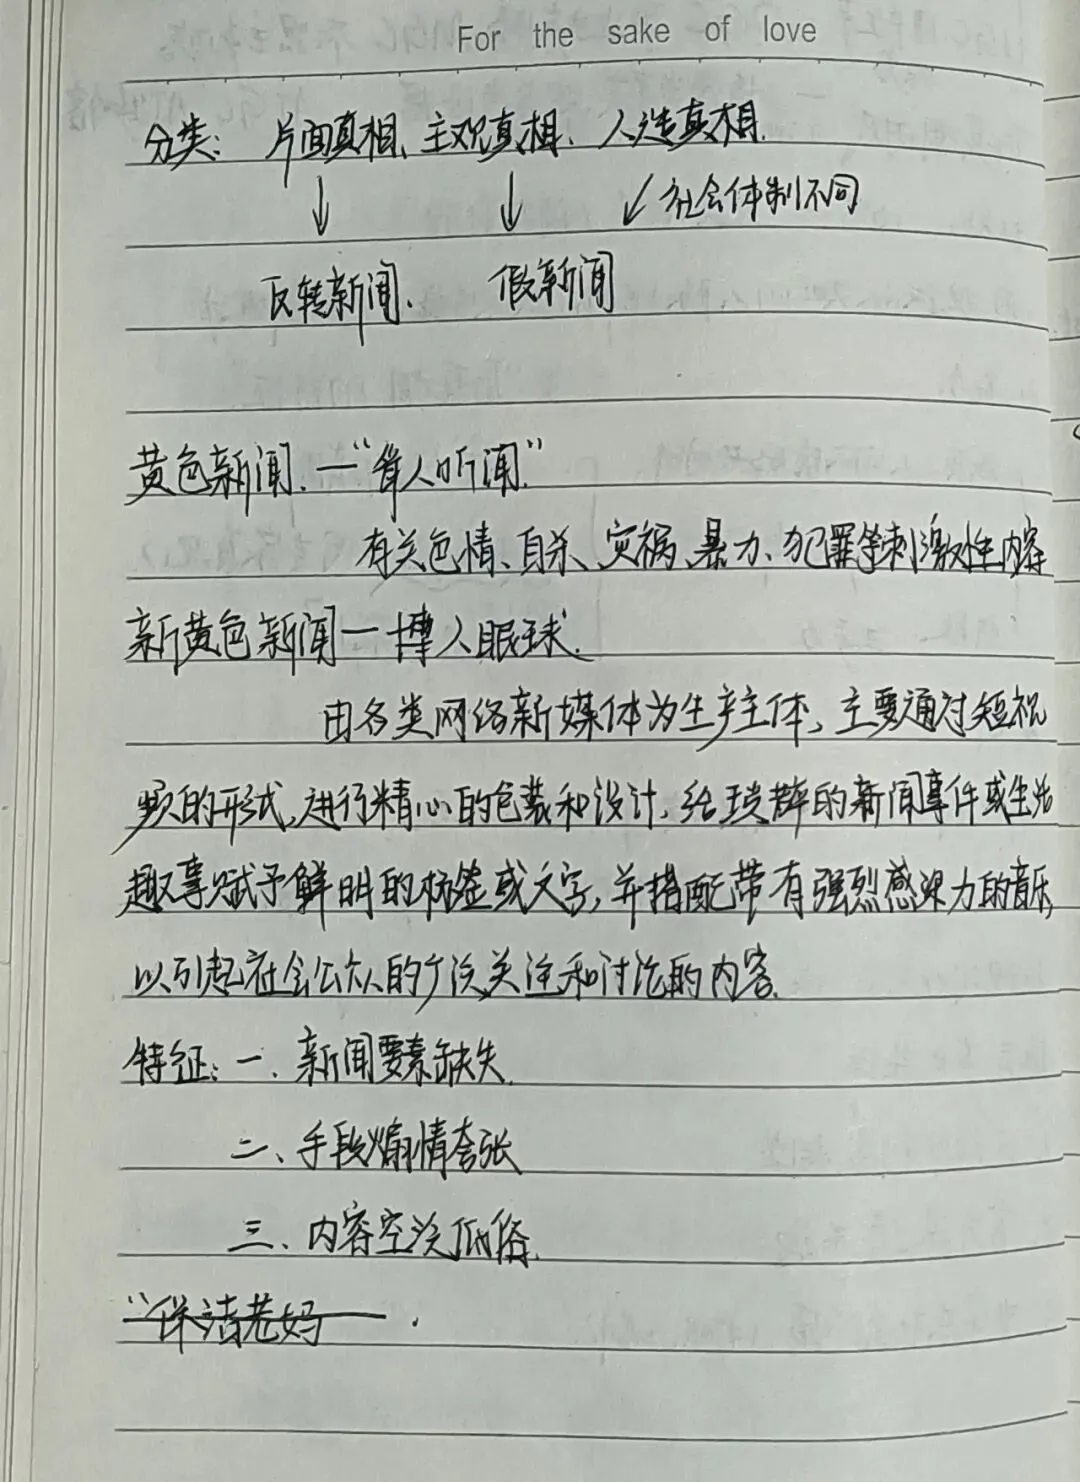 For the sake of love
分类：片面真相、主观真相、人造真相.
↓ ↓ ↙社会体制不同
反转新闻. 假新闻
黄色新闻.—“耸人听闻.”
有关色情、自杀、灾祸、暴力、犯罪等刺激性内容
新黄色新闻—博人眼球.
由各类网络新媒体为生产主体，主要通过短视
频的形式,进行精心的包装和设计,给琐碎的新闻事件或生活
趣事赋予鲜明的标签或文字,并搭配带有强烈感染力的音乐,
以引起社会公众的广泛关注和讨论的内容.
特征：一、新闻要素缺失.
二、手段煽情夸张
三、内容空泛低俗.